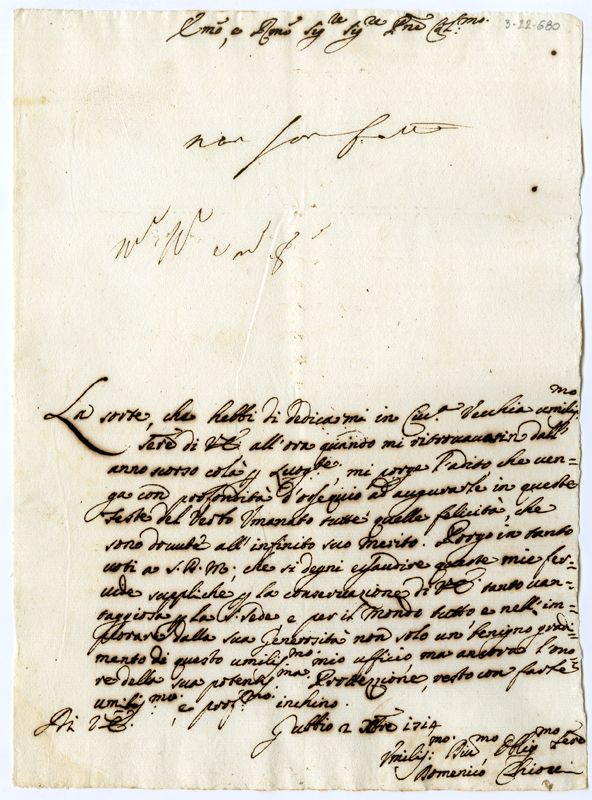 3-22-680
Emo, e Rmo Sigre Sigre Pne Colmo.
La sorte, che hebbi di dedicarmi in Civa Vecchia umilismo
Serre di V.E. all'ora quando mi ritrovavain dall'
anno scorso colà p Luogte, mi porge l'adito che ven=
ga con profondità d'ossequio ad augurarle in queste
feste del Verbo Umanato tutte quelle felicità, che
sono dovute all'infinito suo merito. Porgo in tanto
voti a S.D.M., che si degni esaudire queste mie fer=
vide suppliche p la conservazione di V.E. tanto van=
taggiosa p la S. Sede e per il Mondo tutto e nell'im=
plorare dalla sua generosità non solo un benigno gradi=
mento di questo umilismo mio uffìcio ma ancora l'ono=
re della sua potentisma Protezzione, resto con farle
umilismo, e profmo inchino.
Di V.E. Gubbio 2 Xbre 1714
Umilismo Divmo Obligmo Serre
Domenico